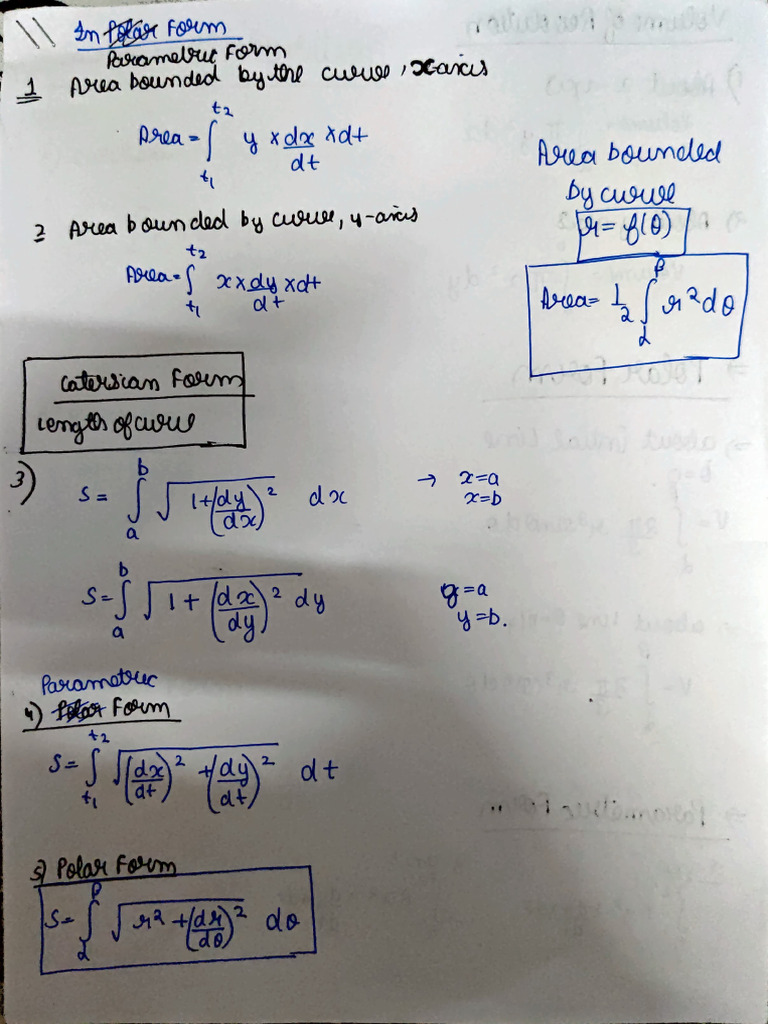 In Polar Form
Parametric Form
1 Area bounded by the curve, x axis
Area = ∫_{t1}^{t2} y × dx/dt × dt
2 Area bounded by curve, y-axis
Area = ∫_{t1}^{t2} x × dy/dt × dt
Area bounded
by curve
r = f(θ)
Area = 1/2 ∫_{α}^{β} r² dθ
Catersian Form
Length of curve
3) S = ∫_{a}^{b} √(1 + (dy/dx)²) dx → x = a
x = b
S = ∫_{a}^{b} √(1 + (dx/dy)²) dy y = a
y = b.
Parametric
4) Polar Form
S = ∫_{t1}^{t2} √((dx/dt)² + (dy/dt)²) dt
5) Polar Form
S = ∫_{α}^{β} √(r² + (dr/dθ)²) dθ